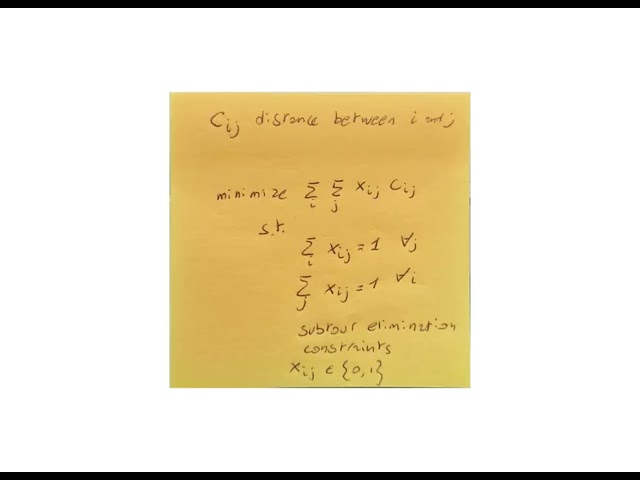 Cij distance between i and j
minimize Σi Σj xij cij
s.t.
Σi xij = 1 ∀j
Σj xij = 1 ∀i
subtour elimination
constraints
xij ∈ {0,1}